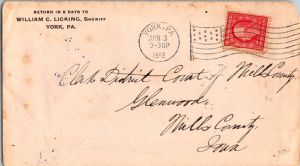 RETURN IN 5 DAYS TO
WILLIAM C. LICKING, SHERIFF
YORK, PA.
YORK, PA.
APR 3
3-30P
1912
Clerk District Court of Mills County
Glenwood,
Mills County
Iowa